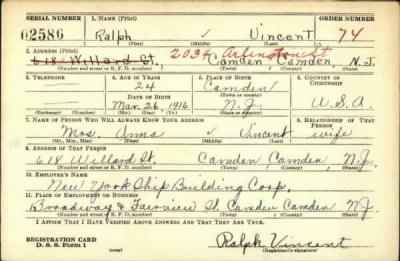 SERIAL NUMBER 1. NAME (Print) ORDER NUMBER
02586 Ralph ✓ Vincent 74
(First) (Middle) (Last)
2. ADDRESS (Print) 2034 Arlington St
618 Willard St. Camden Camden, N.J.
(Number and street or R. F. D. number) (Town) (County) (State)
3. TELEPHONE 4. AGE IN YEARS 5. PLACE OF BIRTH 6. COUNTRY OF CITIZENSHIP
24 Camden
DATE OF BIRTH (Town or county)
Mar. 26, 1916 N.J. U.S.A.
(Exchange) (Number) (Mo.) (Day) (Yr.) (State or country)
7. NAME OF PERSON WHO WILL ALWAYS KNOW YOUR ADDRESS 8. RELATIONSHIP OF THAT PERSON
Mrs. Anna ✓ Vincent wife
(Mr., Mrs., Miss) (First) (Middle) (Last)
9. ADDRESS OF THAT PERSON
618 Willard St. Camden, Camden, N.J.
(Number and street or R. F. D. number) (Town) (County) (State)
10. EMPLOYER'S NAME
New York Ship Building Corp.
11. PLACE OF EMPLOYMENT OR BUSINESS
Broadway & Fairview St. Camden Camden N.J.
(Number and street or R. F. D. number) (Town) (County) (State)
I AFFIRM THAT I HAVE VERIFIED ABOVE ANSWERS AND THAT THEY ARE TRUE.
REGISTRATION CARD
D. S. S. Form 1 Ralph Vincent
(Registrant's signature)